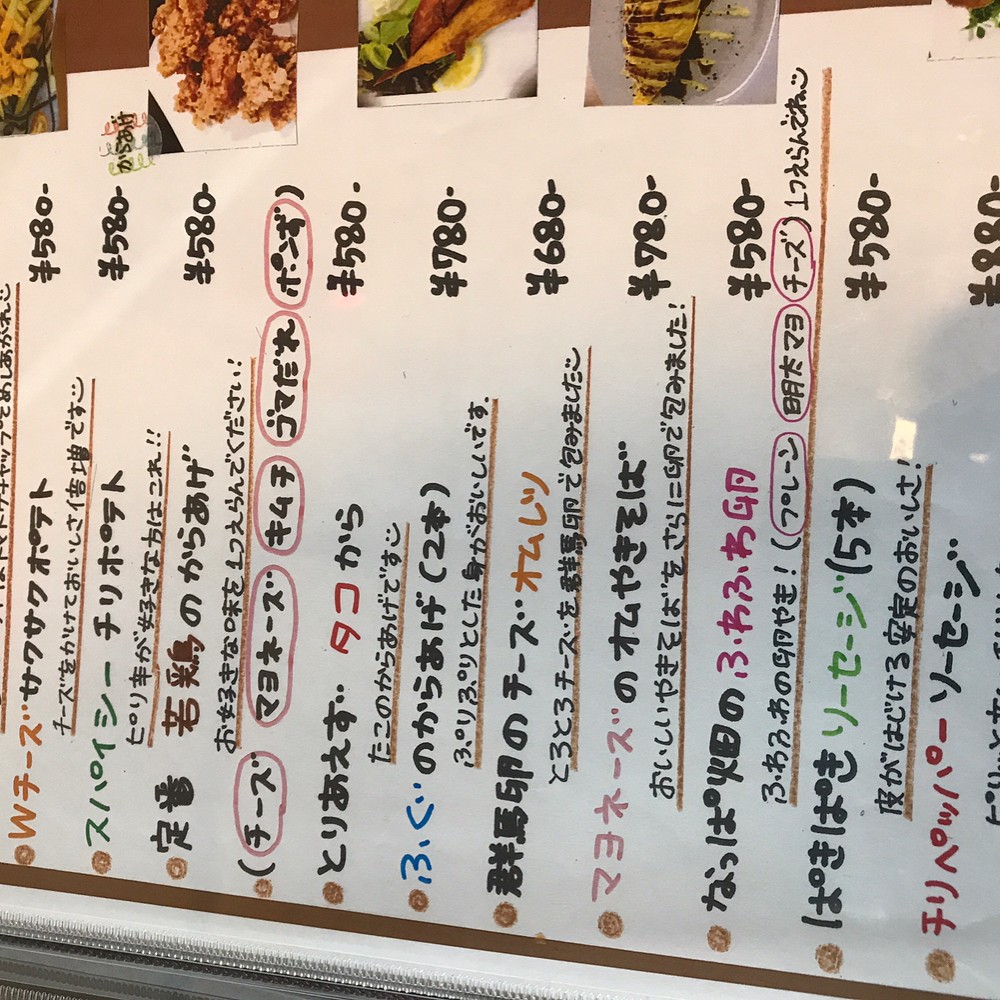 はトマトケチャップでめしあがれ
Wチーズサクサクポテト ¥580-
チーズをかけておいしさ倍増です
スパイシーチリポテト ¥580-
ピリ辛が好きな方はこれ!!
からあげ
定番 若鶏のからあげ ¥580-
お好きな味を1つえらんでください!
(チーズ マヨネーズ キムチ ゴマだれ ポンず)
とりあえず タコから ¥580-
たこのからあげです
ふぐのからあげ(2本) ¥780-
ぷりぷりとした身がおいしいです。
群馬卵のチーズオムレツ ¥680-
とろとろチーズを群馬卵で包みました
マヨネーズのオムやきそば ¥780-
おいしいやきそばをさらに卵で包みました!
なっぱ畑のふわふわ卵 ¥580-
ふわふわの卵やき!(プレーン 明太マヨ チーズ)1つえらんでね
ぱきぱきソーセージ(5本) ¥580-
皮がはじける安定のおいしさ!
チリペッパーソーセージ ¥880-